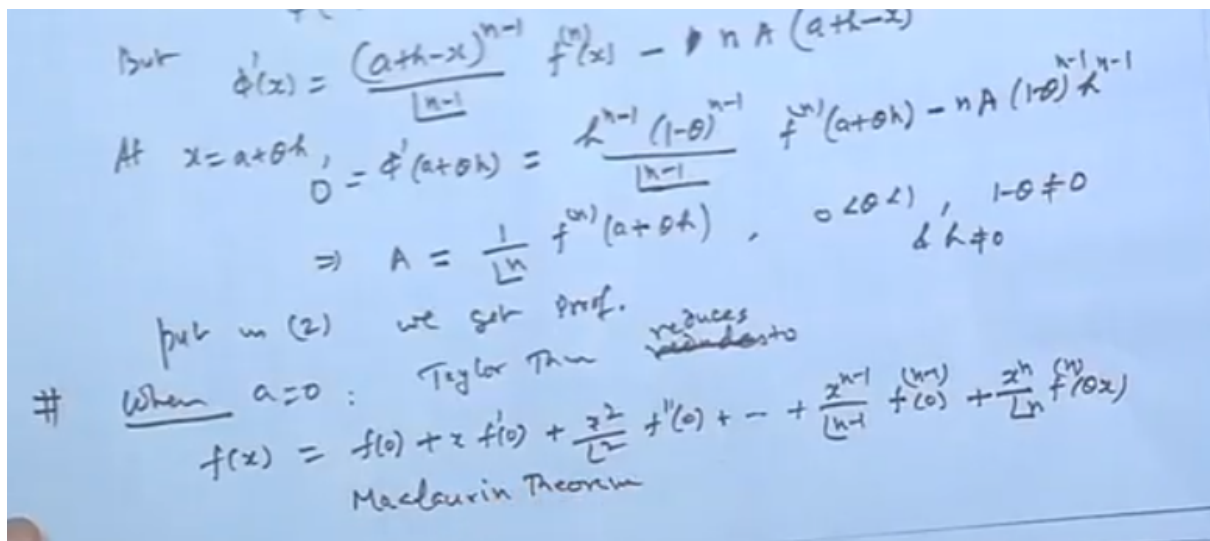 But φ'(x) = (a+h-x)^{n-1} / ⌊n-1 f^{(n)}(x) - n A (a+h-x)
At x = a+θh, 0 = φ'(a+θh) = h^{n-1} (1-θ)^{n-1} / ⌊n-1 f^{(n)}(a+θh) - n A (1-θ)^{n-1} h^{n-1}
⇒ A = 1/⌊n f^{(n)}(a+θh), 0<θ<1, 1-θ≠0
& h≠0
put in (2) we get proof.
# When a=0 : Taylor Thm reduces to
f(x) = f(0) + x f'(0) + x^2/⌊2 f''(0) + - + x^{n-1}/⌊n-1 f^{(n-1)}(0) + x^n/⌊n f^{(n)}(θx)
Maclaurin Theorem